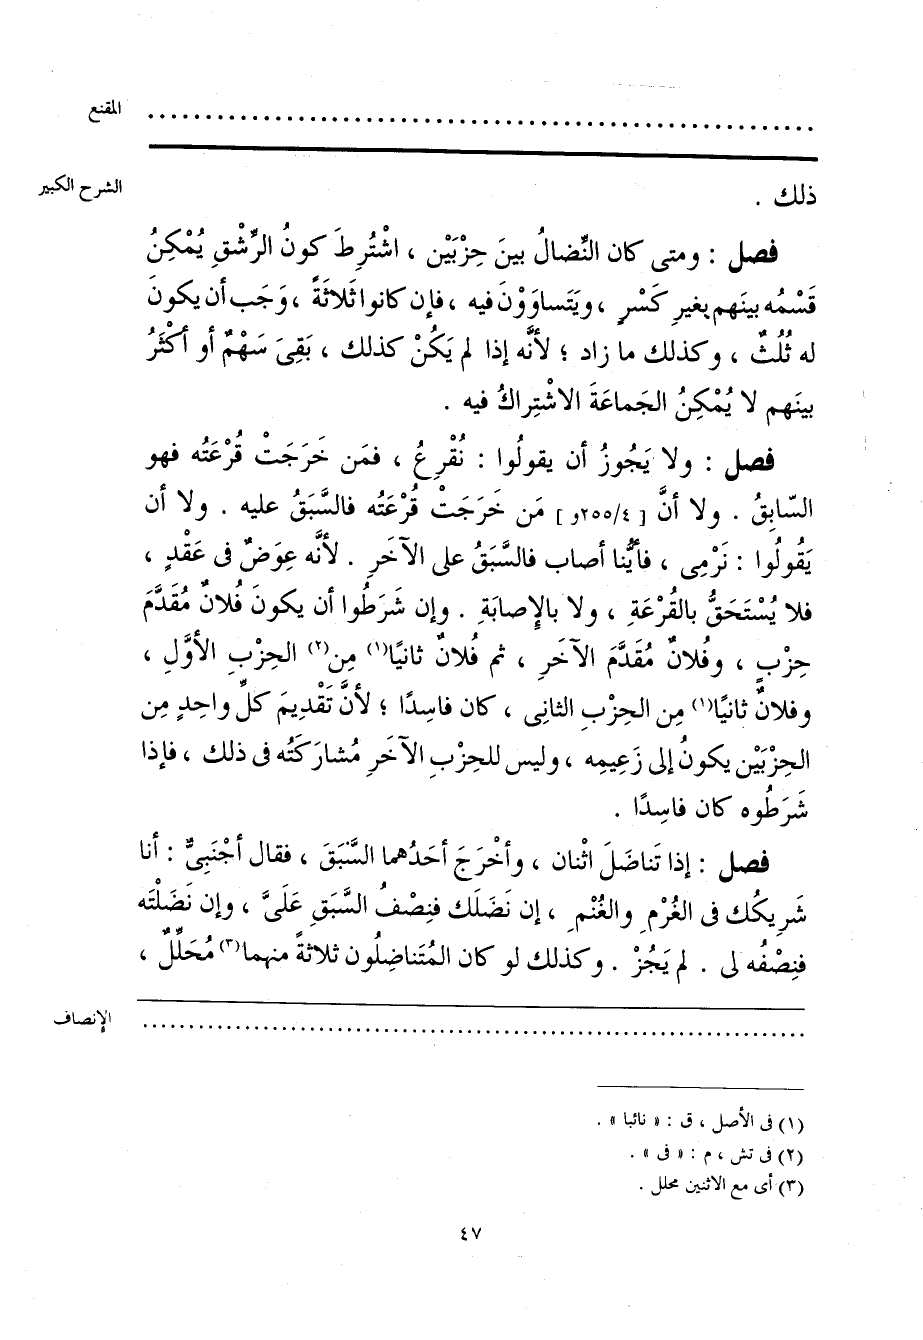 المقنع ................................................
الشرح الكبير
ذلك .
فصل : ومتى كان النِّضالُ بينَ حِزْبَيْن ، اشْتُرِطَ كونُ الرِّشْقِ يُمْكِنُ
قَسْمُه بينَهم بغيرِ كَسْرٍ ، ويَتَساوَوْنَ فيه ، فإن كانوا ثَلاثَةً ، وَجَب أن يكونَ
له ثُلُثٌ ، وكذلك ما زاد ؛ لأنَّه إذا لم يَكُنْ كذلك ، بَقِىَ سَهْمٌ أو أكْثَرُ
بينَهم لا يُمْكِنُ الجَماعَةَ الاشْتِراكُ فيه .
فصل : ولا يَجُوزُ أن يقولُوا : نُقْرِعُ ، فمَن خَرَجَتْ قُرْعَتُه فهو
السّابِقُ . ولا أنَّ [ ٢٥٥/٤و ] مَن خَرَجَتْ قُرْعَتُه فالسَّبَقُ عليه . ولا أن
يَقُولُوا : نَرْمِى ، فأيُّنا أصاب فالسَّبَقُ على الآخَرِ . لأنَّه عِوَضٌ فى عَقْدٍ ،
فلا يُسْتَحَقُّ بالقُرْعَةِ ، ولا بالإِصابَةِ . وإن شَرَطُوا أن يكونَ فُلانٌ مُقَدَّمَ
حِزْبٍ ، وفُلانٌ مُقَدَّمَ الآخَرِ ، ثم فُلانٌ ثانيًا(١) مِن(٢) الحِزْبِ الأوَّلِ ،
وفلانٌ ثانيًا(١) مِن الحِزْبِ الثانِى ، كان فاسِدًا ؛ لأنَّ تَقْدِيمَ كلِّ واحِدٍ مِن
الحِزْبَيْن يكونُ إلى زَعِيمِه ، وليس للحِزْبِ الآخَرِ مُشارَكَتُه فى ذلك ، فإذا
شَرَطُوه كان فاسِدًا .
فصل : إذا تَناضَلَ اثْنان ، وأخْرَجَ أحَدُهما السَّبَقَ ، فقال أجْنَبِىٌّ : أنا
شَرِيكُك فى الغُرْمِ والغُنْمِ ، إن نَضَلَك فنِصْفُ السَّبَقِ عَلَىَّ ، وإن نَضَلْتَه
فنِصْفُه لى . لم يَجُزْ . وكذلك لو كان المُتَناضِلُون ثلاثةً منهما(٣) مُحَلِّلٌ ،
الإنصاف ................................................
(١) فى الأصل ، ق : « نائبا » .
(٢) فى تش ، م : « فى » .
(٣) أى مع الاثنين محلل .
٤٧